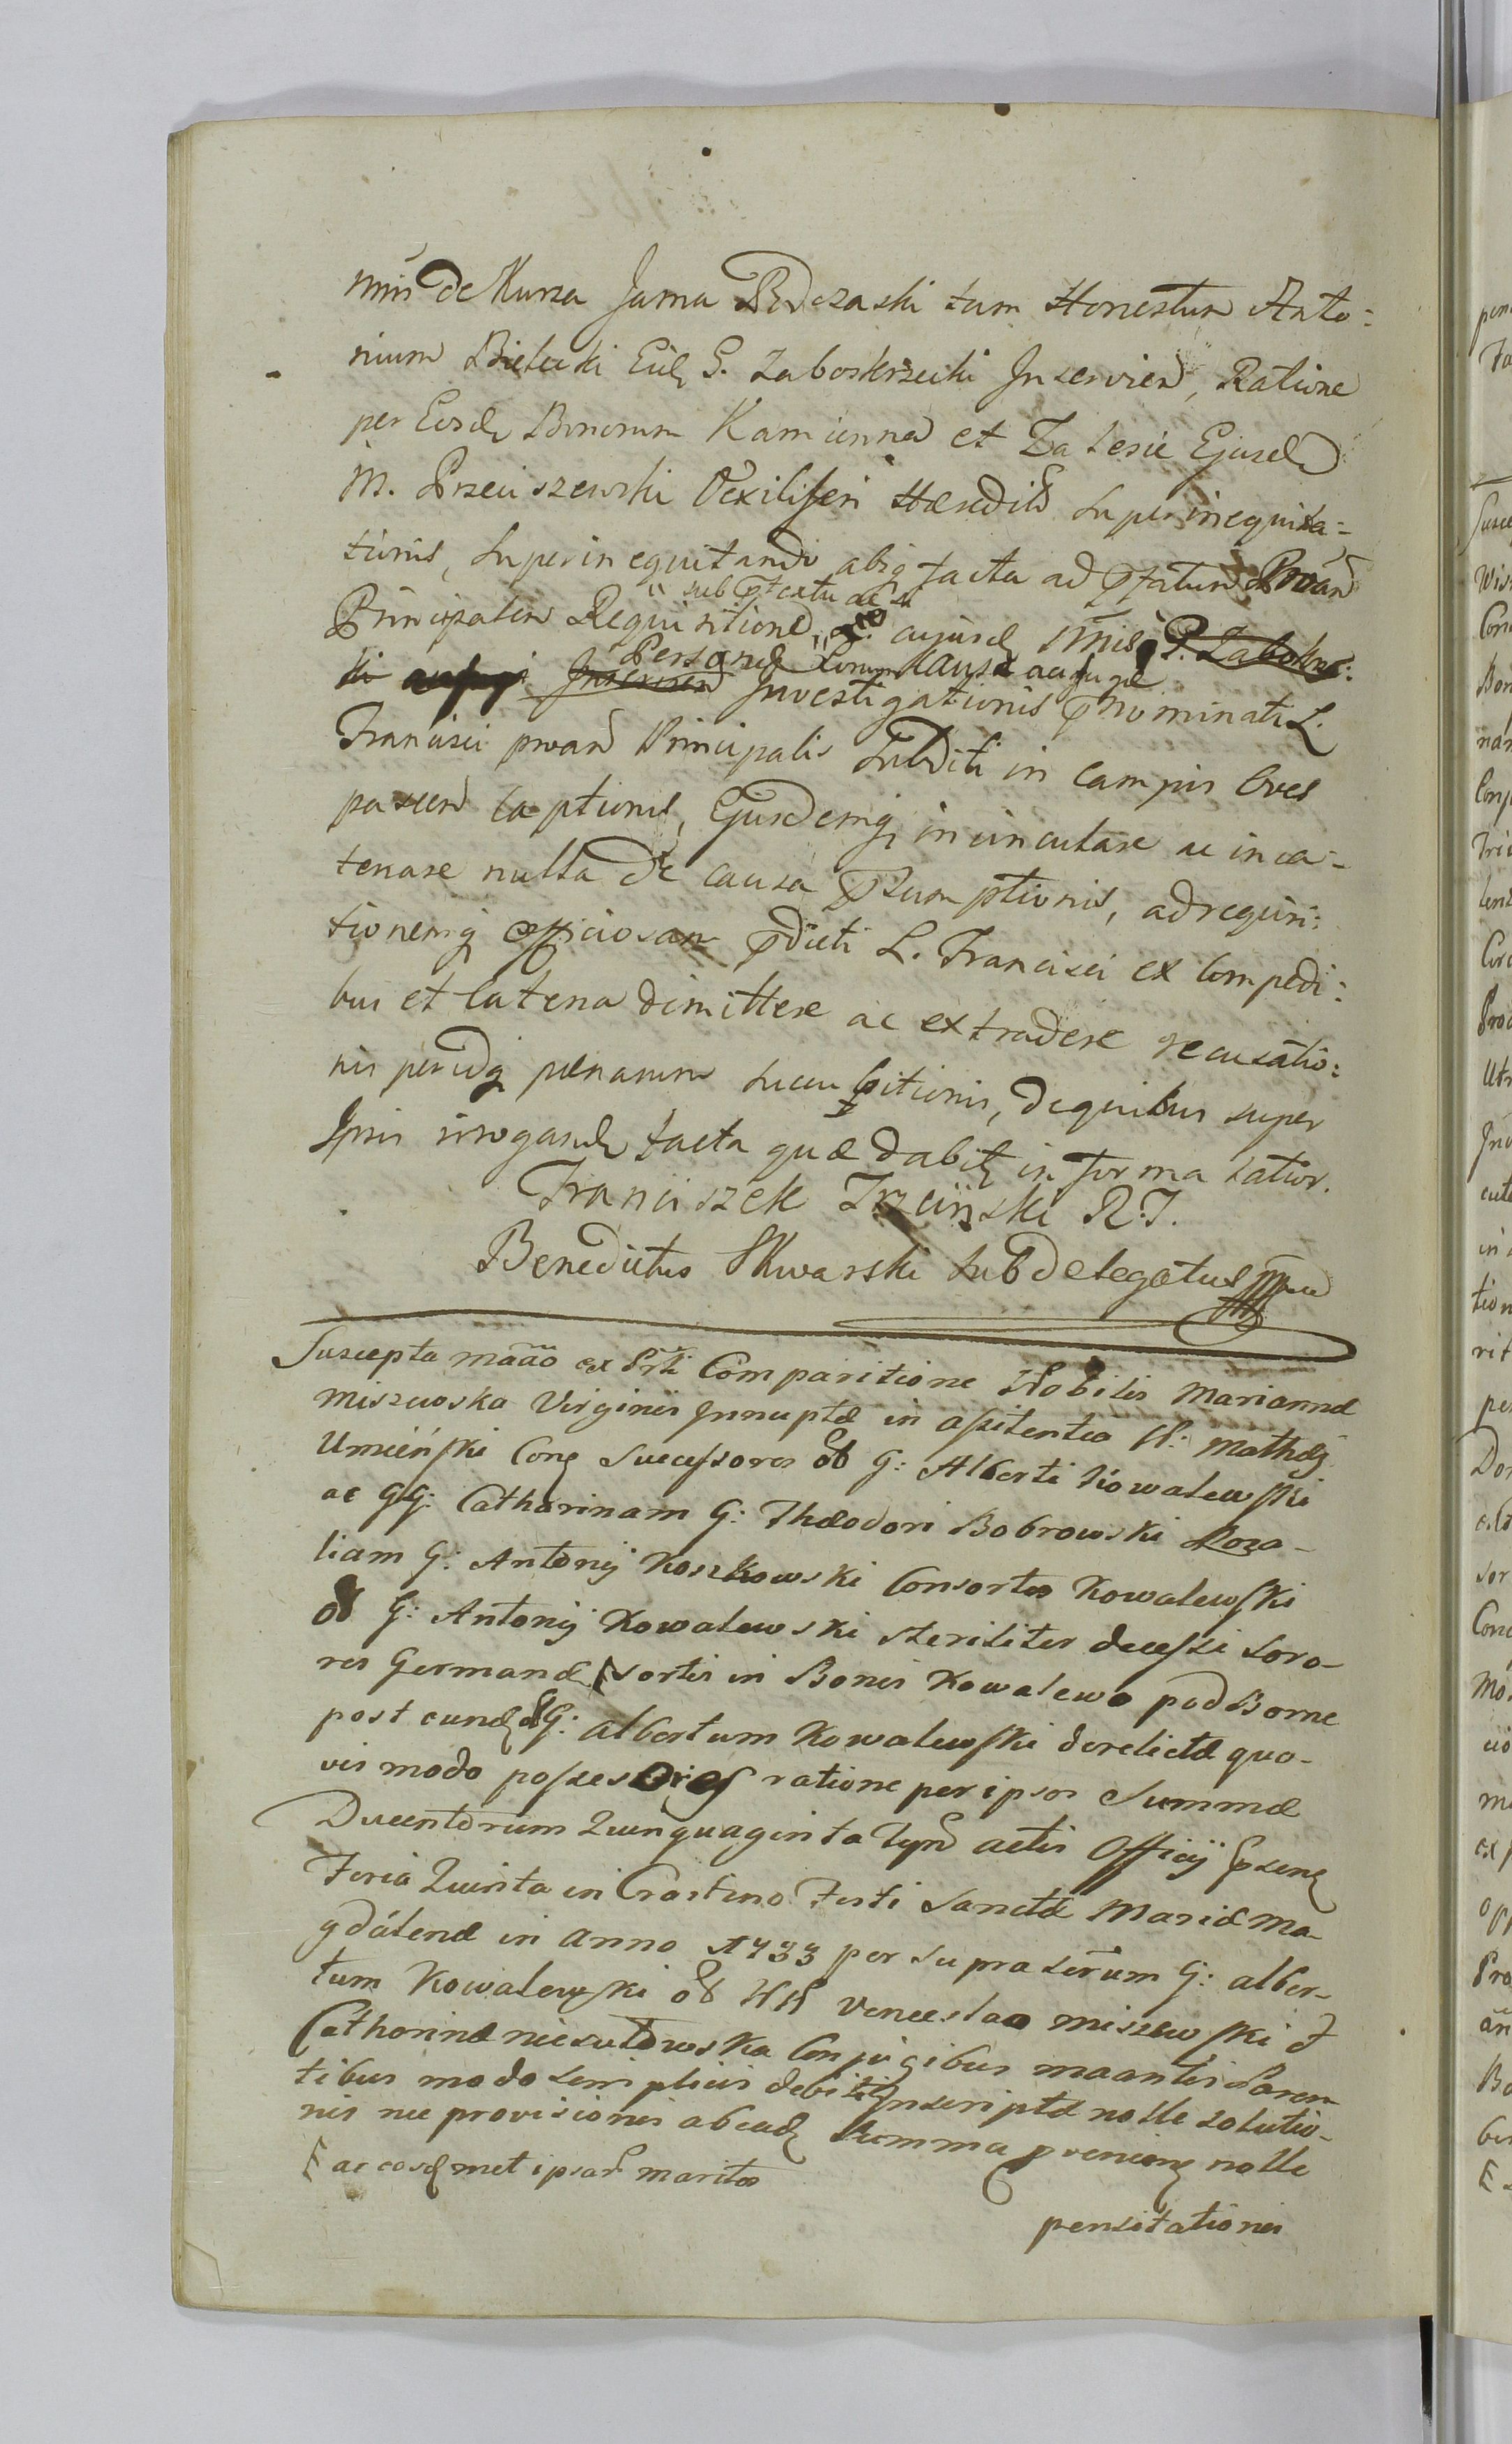 mis de Kurza Jama Bodczaski tum Honestum Anto:
nium Bielicki Eid G. Zaboskrzecki Inservien, Ratione
per Eosd Bonorum Kamienna et Zalesie Ejusd
M. Przeciszewski Vexiliferi Hæredit superinequita:
tionis, superinequitando absq facta ad pfatum Proan
sub ptextu ac si
Principalem Requisitione, cujusd P. Zaboskrz:
Personæ causa aufugæ
ki Inservien Investigationis pnominati L.
Francisci proan Principalis Subditi in Campis Oves
pascen captionis, Ejusdemq invinculare ac inca-
tenare nulla de causa psumptionis, ad requisi:
tionemq officiosam pdicti L. Francisci ex Compedi:
bus et Catena dimittere ac extradere recusatio:
nis peridq pœnarum succubitionis, de quibus super
Ipsis irrogand facta quæ dabit informa latior.
Franciszek Trzciński R. J.
Benedictus Skwarski Subdelegatus mp
Suscepta mããõ ex Prti Comparitione Nobilis Mariannæ
Miszewska Virginis Innuptæ in assitentia N: Mathæ
Umieński Conq Successores olb G: Alberti Kowalewski
ac GG: Catharinam G: Theodori Bobrowski Roza-
liam G: Antonij Koszkowski Consortes Kowalewski
olb G: Antonij Kowalewski steriliter decessi Soro-
res Germanæ sortis in Bonis Kowalewo pod Borne
post eund olb G: Albertum Kowalewski derelictæ quo-
vis modo possessores ratione per ipsos Summæ
Ducentorum Quinquaginta Tyn actis Officij Psenq
Feria Quinta in Crastino Festi Sanctæ Mariæ Ma-
gdálenæ in Anno 1733 per suprascrum G: Alber-
tum Kowalewski olb NN Venceslao Miszewski et
Catharinæ niesułowska Conjugibus maantis Paren-
tibus modo simplicis debiti Inscriptæ nolle solutio-
nis nec provisionis ab ead Summa pvenienq nolle
ac eosd met ipsar maritos
pensitationis